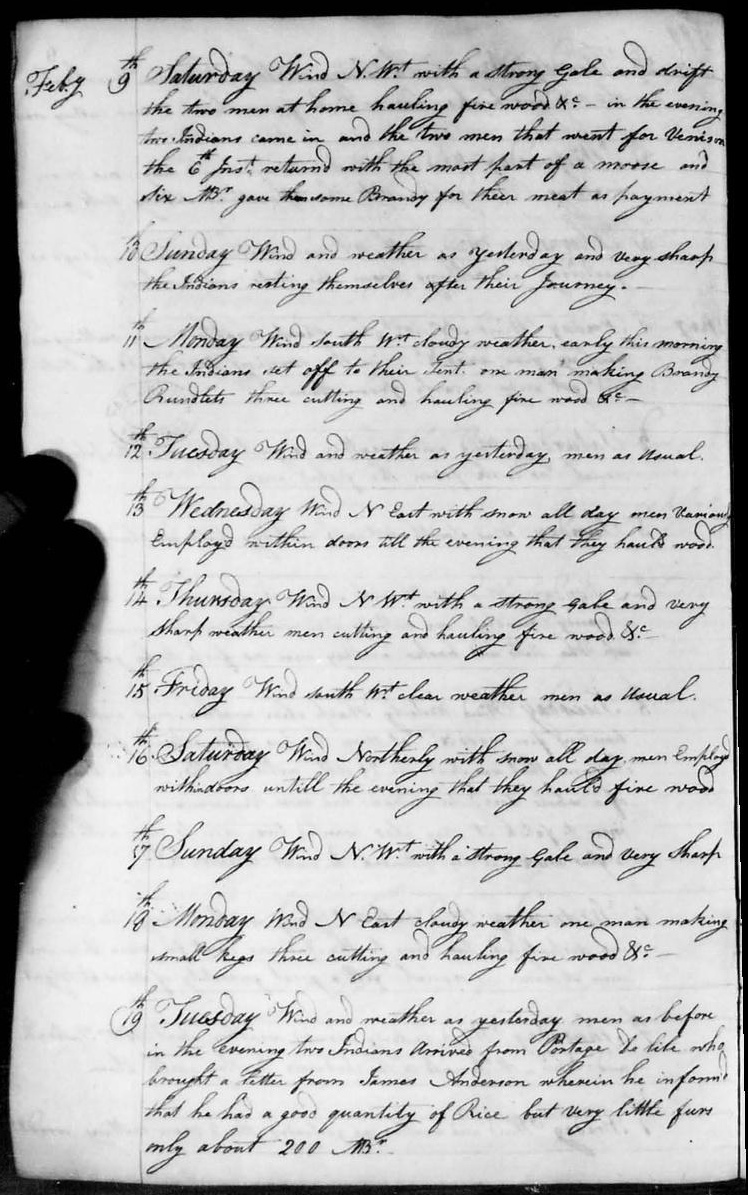 Feby 9th Saturday Wind N. Wt with a strong Gale and drift
the two men at home hauling fire wood &c - in the evening
two Indians came in and the two men that went for Venison
the 6th Inst. returnd with the most part of a moose and
six MBr gave them some Brandy for their meat as payment
10 Sunday Wind and weather as Yesterday and very sharp
the Indians resting themselves after their Journey.
11th Monday Wind South Wt cloudy weather, early this morning
the Indians set off to their Tent. one man making Brandy
Rundlets three cutting and hauling fire wood &c -
12th Tuesday Wind and weather as yesterday, men as Usual.
13th Wednesday Wind N East with snow all day men Variously
Employd within doors till the evening that they hauld wood
14th Thursday Wind N Wt with a strong Gale and very
sharp weather men cutting and hauling fire wood &c -
15th Friday Wind South Wt clear weather men as Usual.
16th Saturday Wind Northerly with snow all day, men Employd
withindoors untill the evening that they hauld fire wood
17th Sunday Wind N. Wt with a strong Gale and very Sharp
18th Monday Wind N East cloudy weather one man making
small kegs three cutting and hauling fire wood &c -
19th Tuesday Wind and weather as yesterday men as before
in the evening two Indians arrived from Portage De lile who
brought a letter from James Anderson wherein he informd
that he had a good quantity of Rice but very little furs
only about 200 MBr.